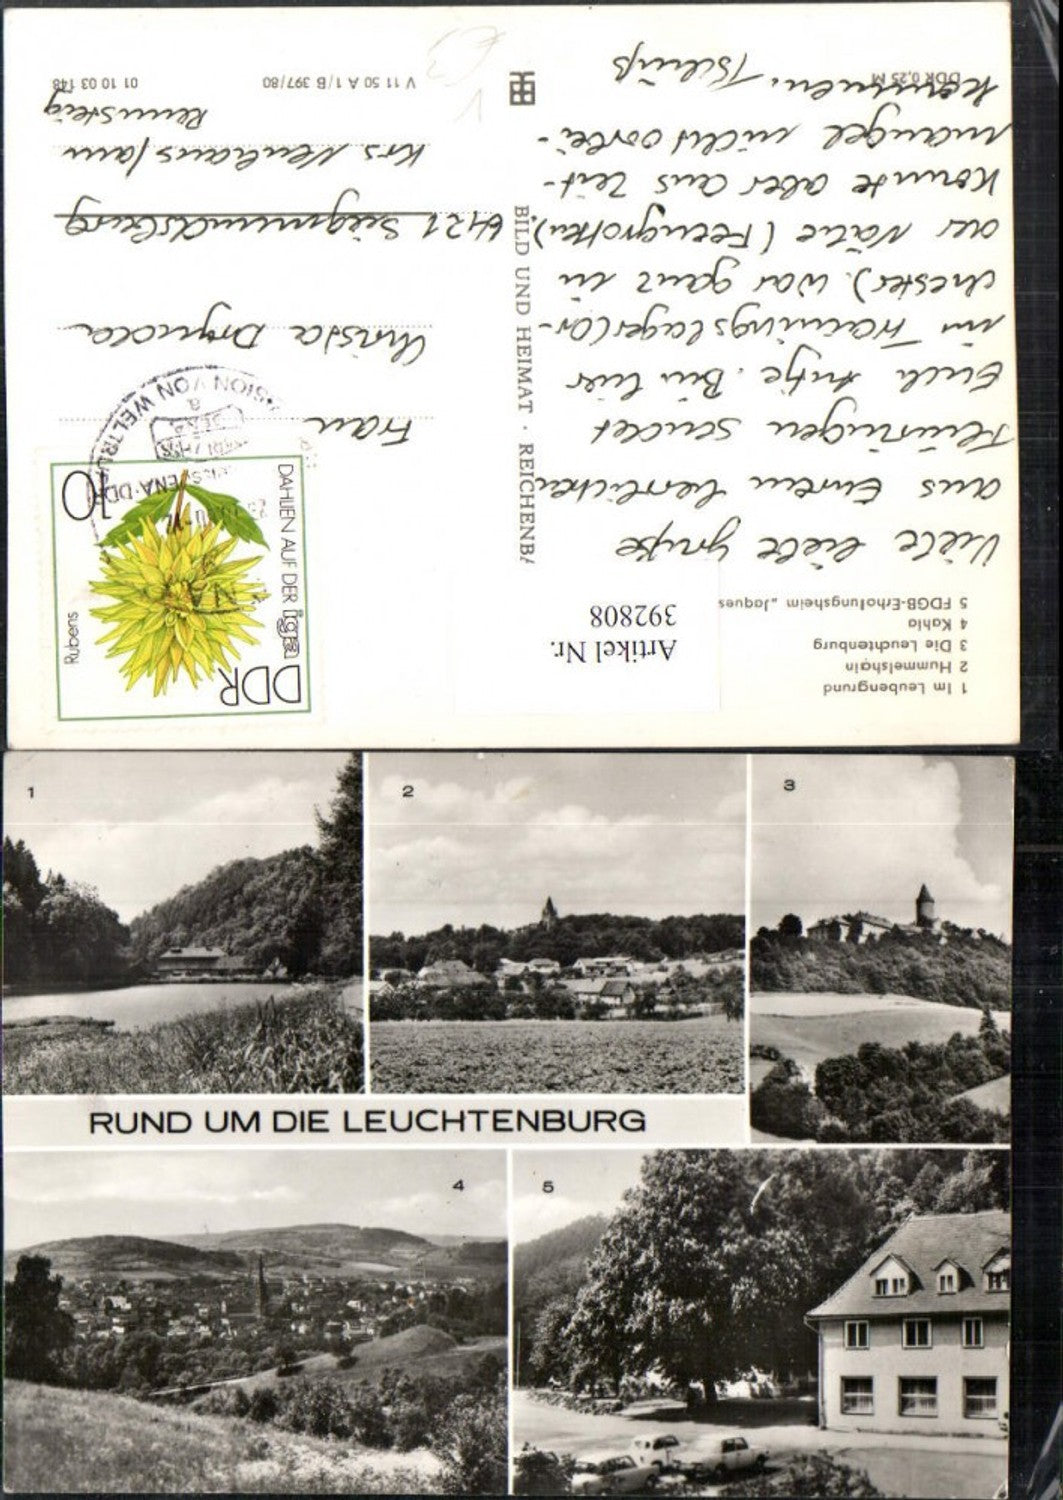 1 Im Leubengrund
2 Hummelshain
3 Die Leuchtenburg
4 Kahla
5 FDGB-Erholungsheim „Jaques
Artikel Nr.
392808
Viele liebe Grüße
aus Eurem herrlichen
Thüringen sendet
Euch Antje. Bin hier
im Trainingslager (Or-
chester). War ganz in
der Nähe (Feengrotten),
konnte aber aus Zeit-
mangel nicht vorbei-
kommen. Tschüß
DDR 0,25 M
BILD UND HEIMAT · REICHENBA
DDR
DAHLIEN AUF DER iga
Rubens
10
JENA · DDR
VON WELTRU
Frau
Christa
6421 Siegmundsburg
Krs Neuhaus/am
Rennsteig
V 11 50 A 1/B 397/80
01 10 03 148
1
2
3
RUND UM DIE LEUCHTENBURG
4
5